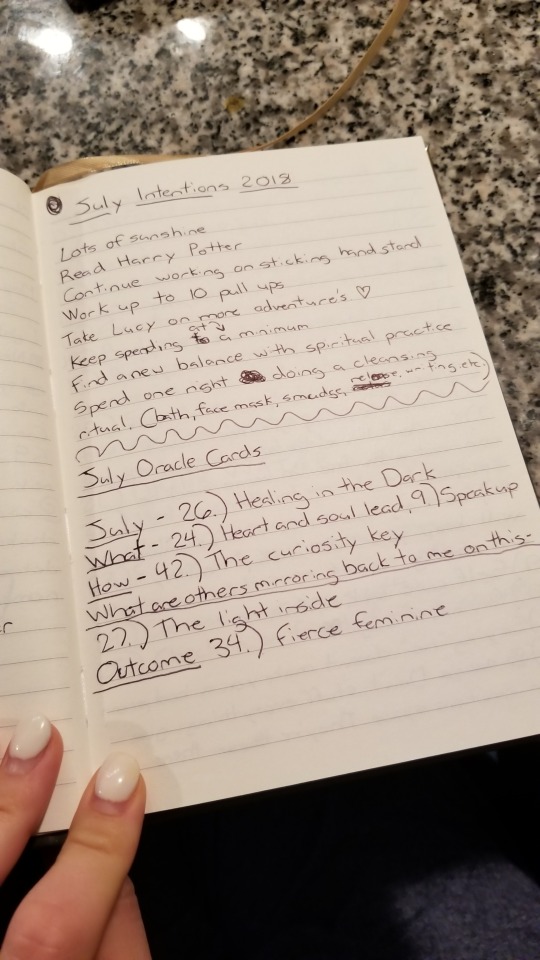 July Intentions 2018
Lots of sunshine
Read Harry Potter
Continue working on sticking handstand
Work up to 10 pull ups
Take Lucy on more adventure's ♡
Keep spending at a minimum
Find a new balance with spiritual practice
Spend one night doing a cleansing
ritual. (bath, face mask, smudge, release, writing, etc.)
July Oracle Cards
July - 26.) Healing in the Dark
What - 24.) Heart and soul lead, 9.) Speak up
How - 42.) The curiosity key
What are others mirroring back to me on this-
27.) The light inside
Outcome 34.) fierce feminine